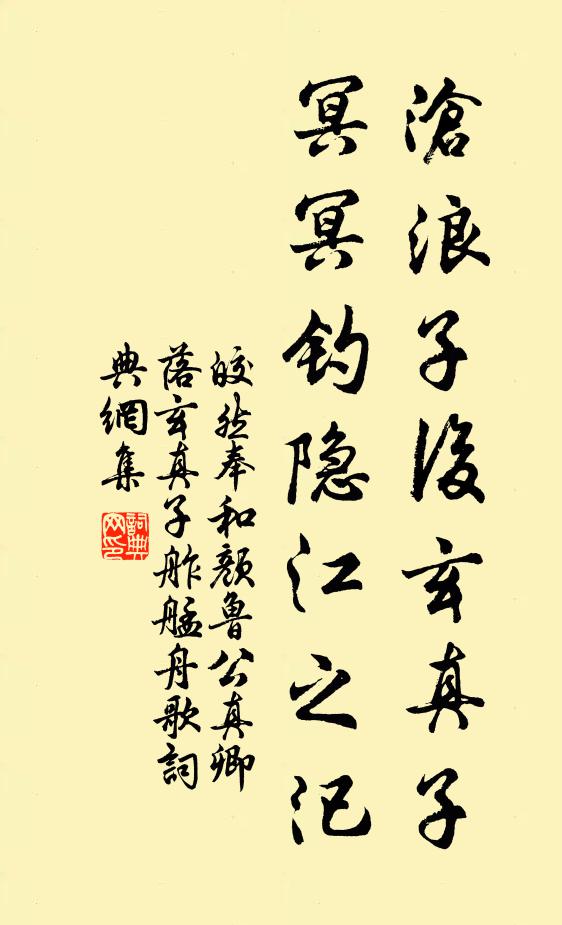 滄浪子後玄真子
冥冥釣隐江之汜
皎然奉和颜鲁公真卿
落玄真子舴艋舟歌詞
典網集
詞典網印